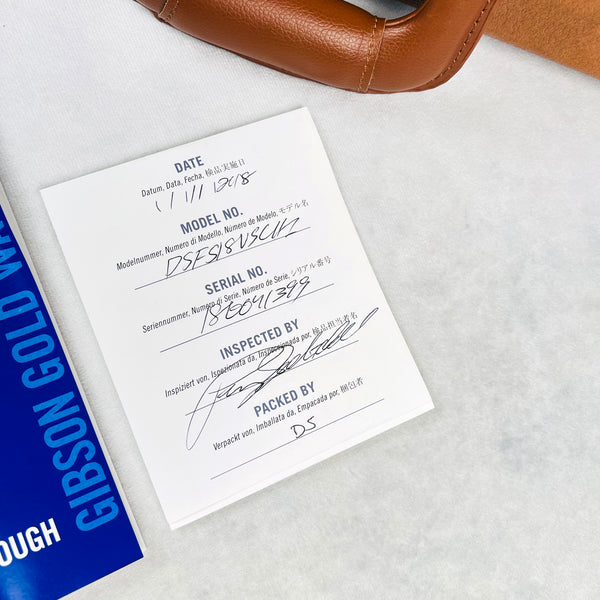 DATE
Datum, Data, Fecha, 検品実施日
MODEL NO.
Modelnummer, Numero di Modello, Número de Modelo, モデル名
DSFS18VSCH1
SERIAL NO.
Seriennummer, Numero di Serie, Número de Serie, シリアル番号
INSPECTED BY
Inspiziert von, Ispezionata da, Inspeccionada por, 検品担当者名
PACKED BY
Verpackt von, Imballata da, Empacada por, 梱包者
DS
GIBSON GOLD WA
OUGH